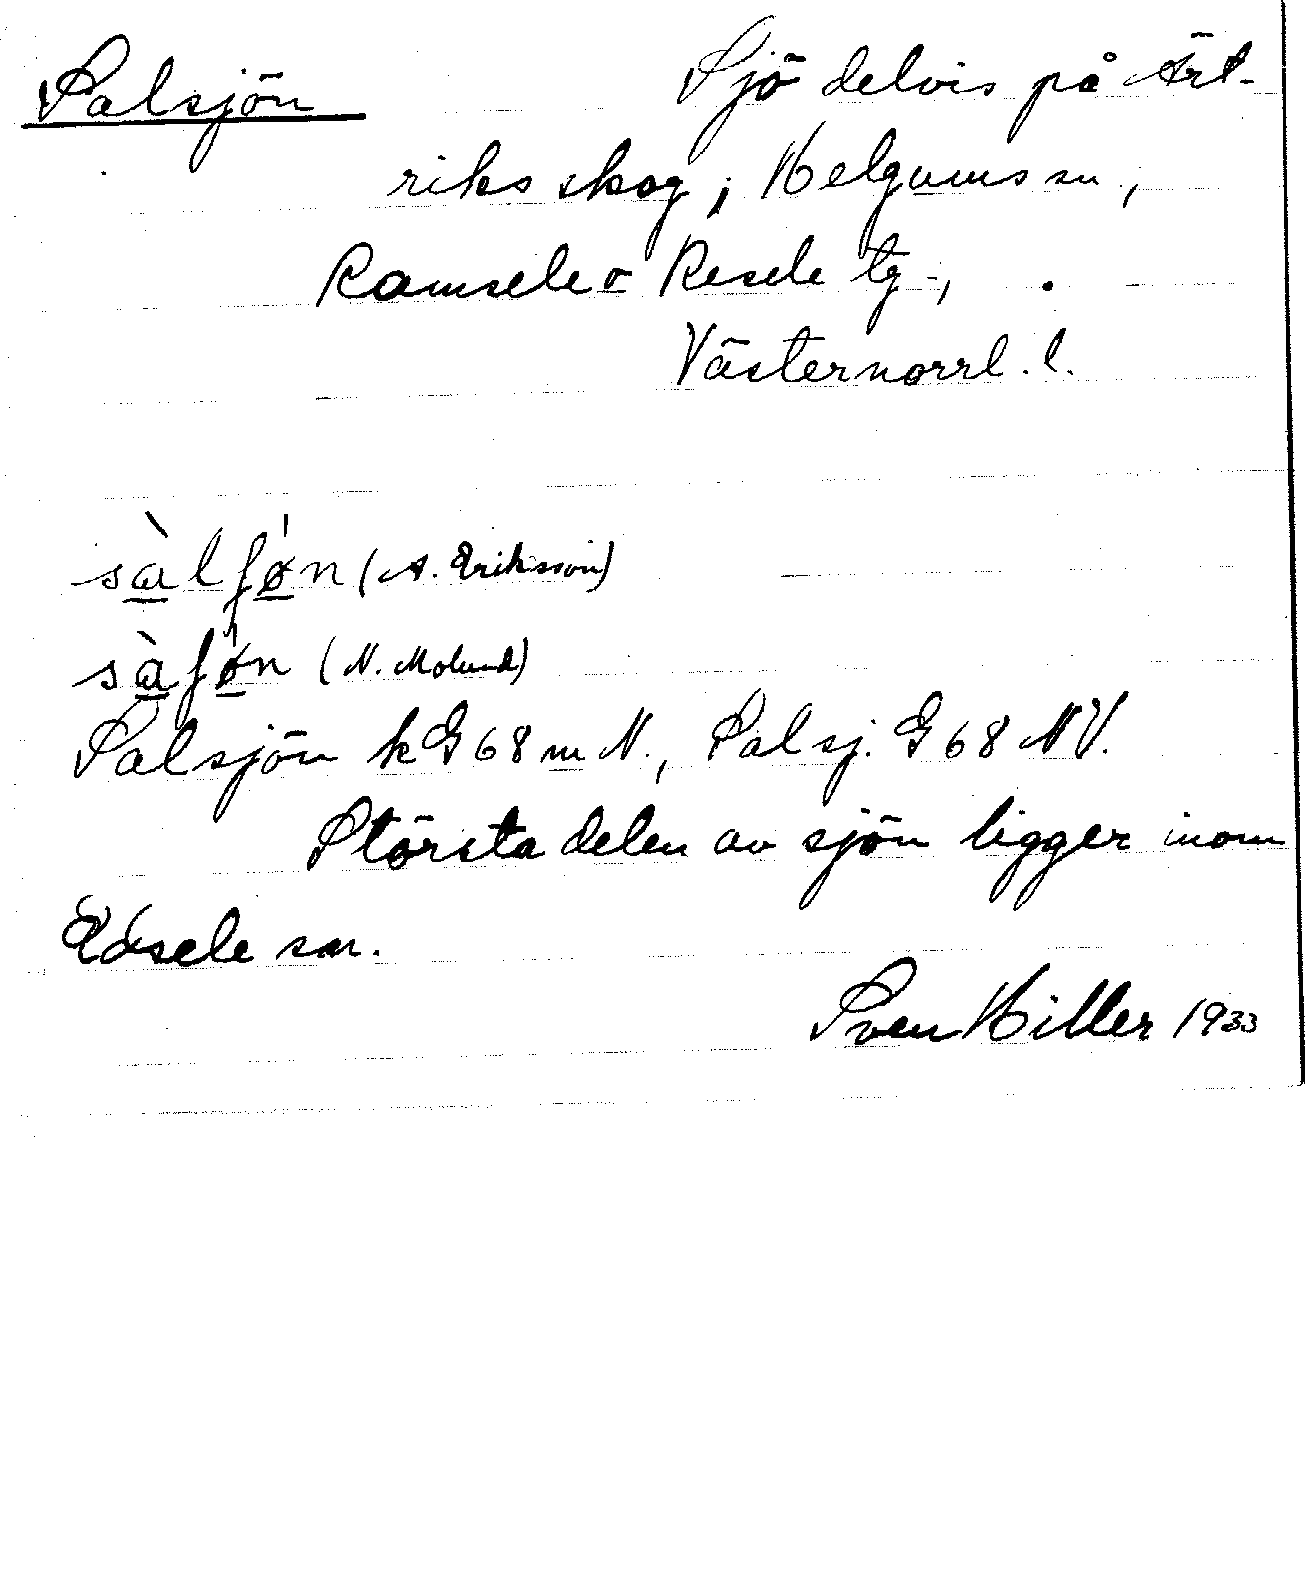 Salsjön Sjö delvis på Ärt-
riks skog; Helgums sn,
Ramsele o Resele tg.,
Västernorrl. l.
sàlʃø̍n (A. Eriksson)
sàʃø̍n (N. Molund)
Salsjön k G 68 m N., Salsj. G 68 NV.
Största delen av sjön ligger inom
Edsele sn.
Sven Hiller 1933